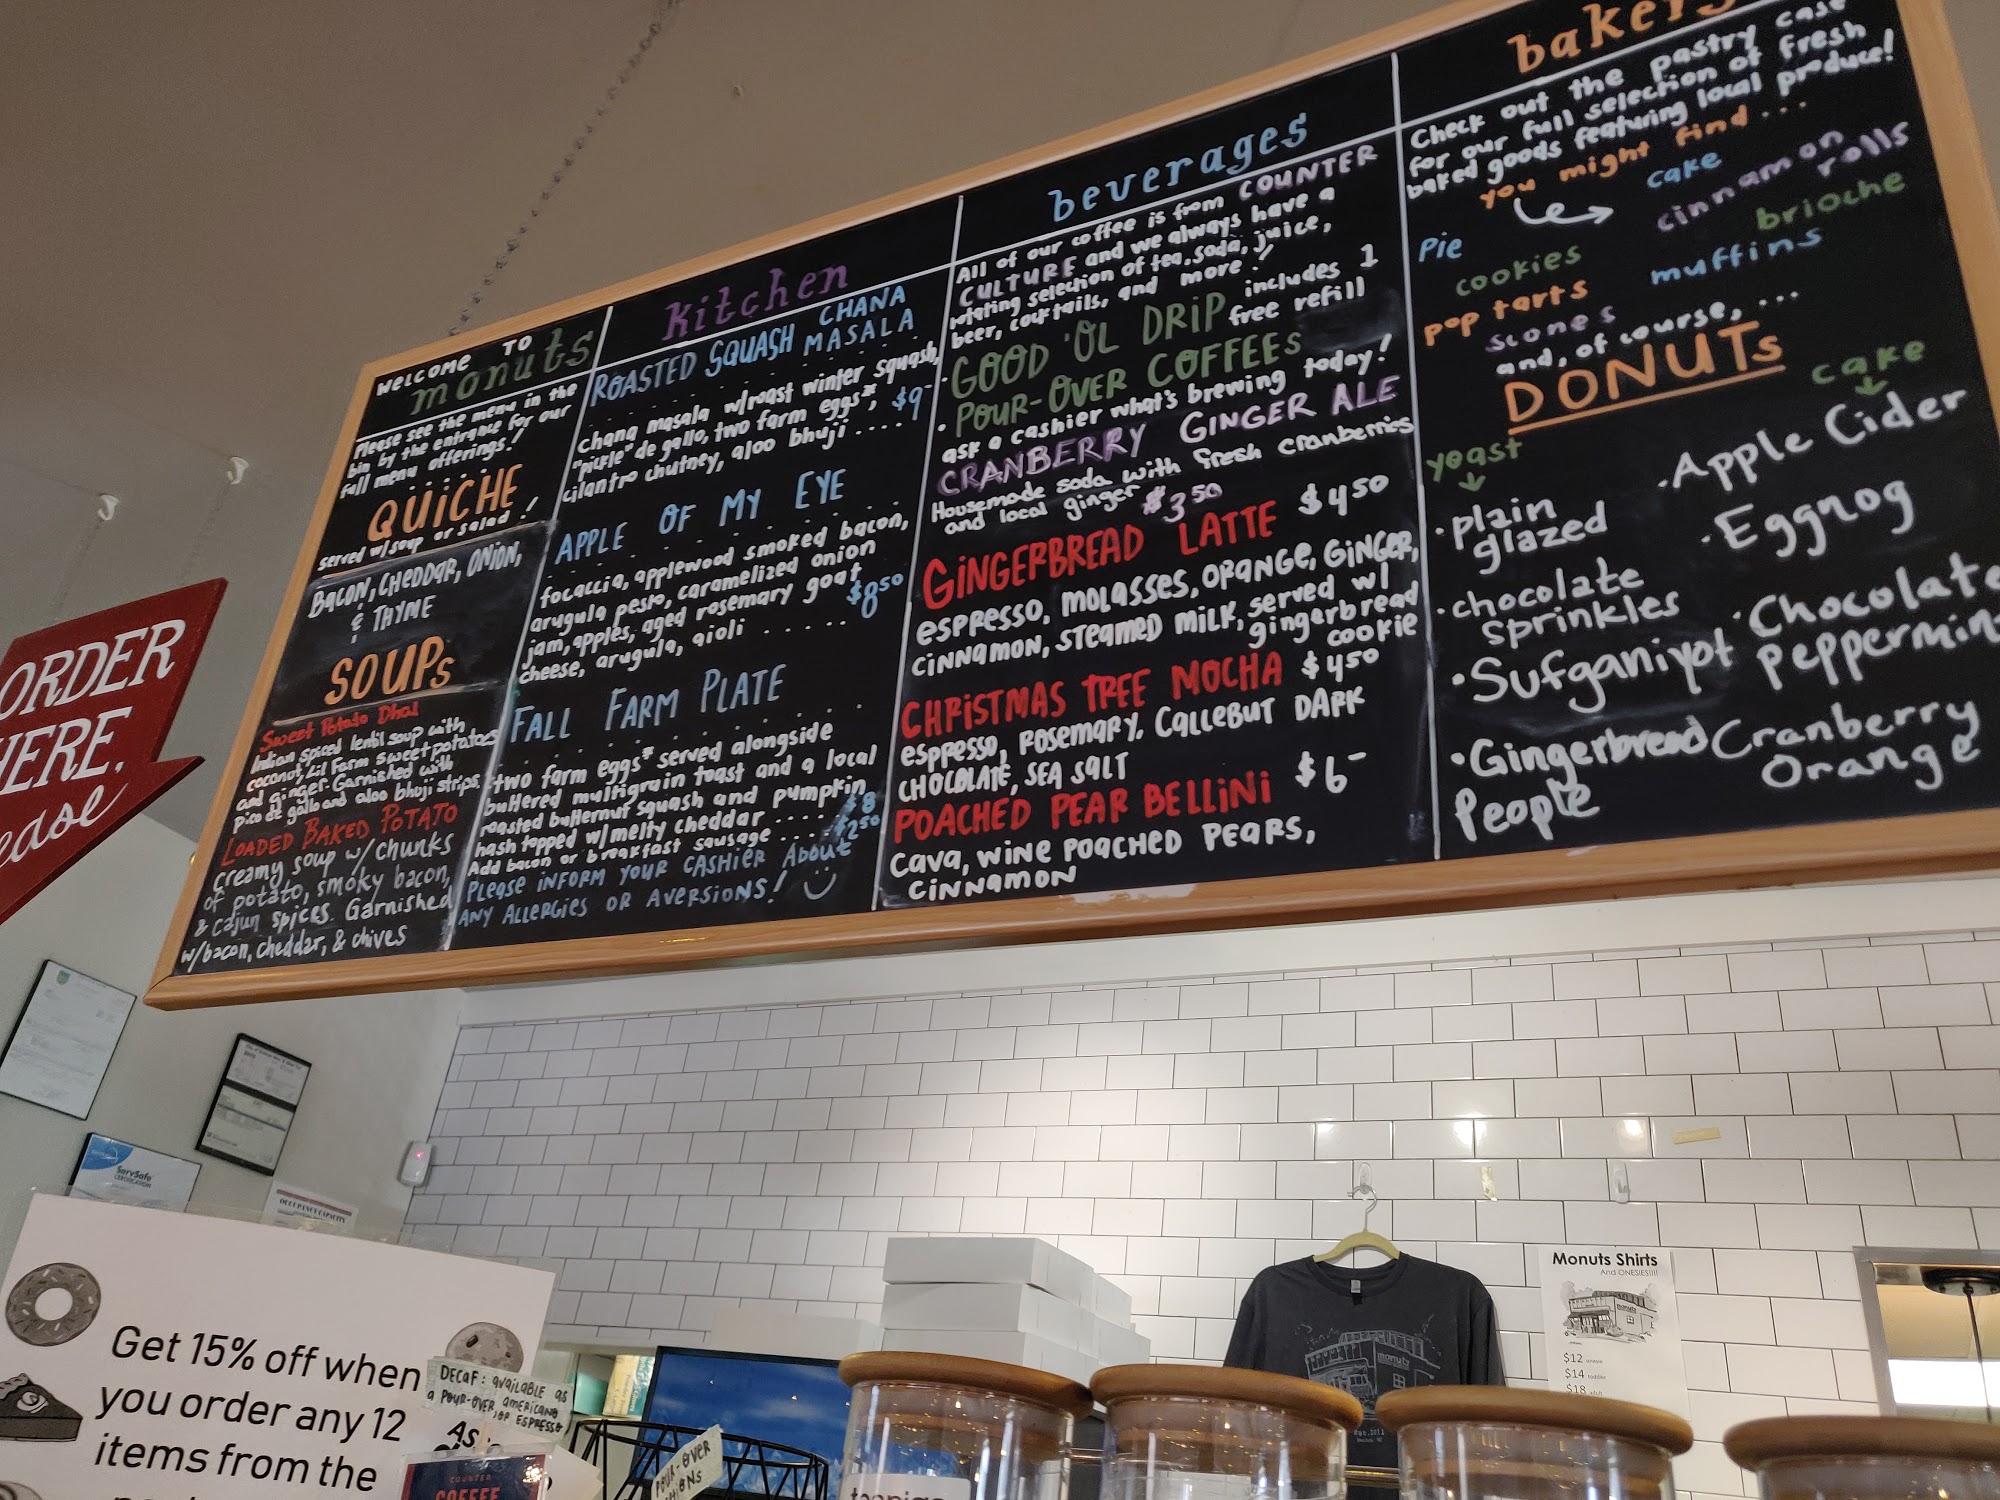 WELCOME TO
monuts
Please see the menu in the
bin by the entrance for our
full menu offerings!
QUICHE
served w/soup or salad!
BACON, CHEDDAR, ONION,
& THYME
SOUPS
Sweet Potato Dhal
Indian spiced lentil soup with
coconut, Lil Farm sweet potatoes
and ginger. Garnished with
pico de gallo and aloo bhuji strips
LOADED BAKED POTATO
creamy soup w/ chunks
of potato, smoky bacon,
& cajun spices. Garnished
w/bacon, cheddar, & chives
kitchen
ROASTED SQUASH CHANA
MASALA
chana masala w/roast winter squash,
"pickle" de gallo, two farm eggs*,
cilantro chutney, aloo bhuji .... $9-
APPLE OF MY EYE
focaccia, applewood smoked bacon,
arugula pesto, caramelized onion
jam, apples, aged rosemary goat
cheese, arugula, aioli ...... $8.50
FALL FARM PLATE
two farm eggs* served alongside
buttered multigrain toast and a local
roasted butternut squash and pumpkin
hash topped w/melty cheddar .... $8
Add bacon or breakfast sausage ... $2.50
PLEASE INFORM YOUR CASHIER ABOUT
ANY ALLERGIES OR AVERSIONS!
beverages
All of our coffee is from COUNTER
CULTURE and we always have a
rotating selection of tea, soda, juice,
beer, cocktails, and more!
• GOOD 'OL DRIP includes 1
free refill
• POUR-OVER COFFEES
ask a cashier what's brewing today!
CRANBERRY GINGER ALE
Housemade soda with fresh cranberries
and local ginger $3.50
GINGERBREAD LATTE $4.50
ESPRESSO, MOLASSES, ORANGE, GINGER,
CINNAMON, STEAMED MILK, served w/
gingerbread
cookie
CHRISTMAS TREE MOCHA $4.50
ESPRESSO, ROSEMARY, CALLEBUT DARK
CHOCOLATE, SEA SALT
POACHED PEAR BELLINI $6-
CAVA, WINE POACHED PEARS,
CINNAMON
bakery
Check out the pastry case
for our full selection of fresh
baked goods featuring local produce!
you might find...
cake
Pie
cinnamon
rolls
cookies
brioche
pop tarts
muffins
scones
and, of course,...
DONUTS
yeast
• plain
glazed
• chocolate
sprinkles
• Sufganiyot
• Gingerbread
People
cake
• Apple Cider
• Eggnog
• Chocolate
Peppermin
Cranberry
Orange
ORDER
HERE.
ease
ServSafe
CERTIFICATION
OCCUPANCY CAPACITY
Get 15% off when
you order any 12
items from the
DECAF: available as
a POUR-OVER, AMERICANO
, OR ESPRESSO
COUNTER
COFFEE
POUR-OVER
Monuts Shirts
And ONESIES!!!!
monuts
$12
$14 toddler
$18 adult
monuts